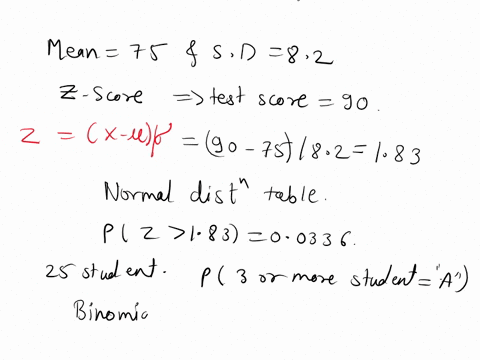 Mean = 75 & S.D = 8.2
Z-Score ⇒ test score = 90.
Z = (x-μ)/σ = (90-75)/8.2 = 1.83
Normal distⁿ table.
P(Z>1.83) = 0.0336.
25 student. P(3 or more student = "A")
Binomic